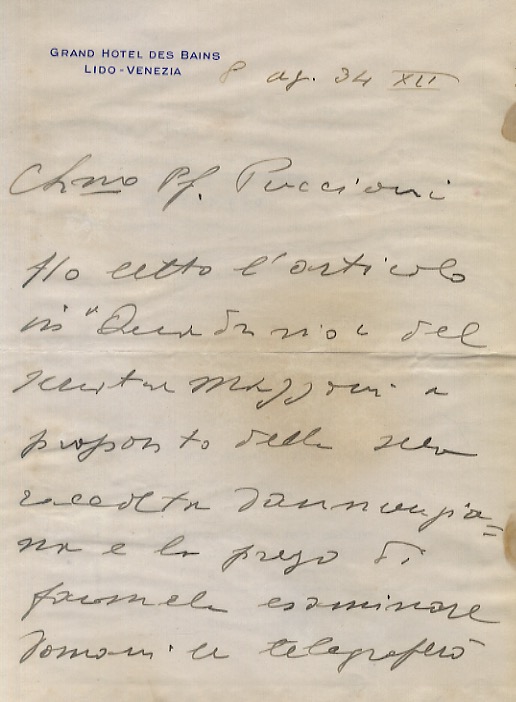 GRAND HOTEL DES BAINS
LIDO-VENEZIA
8 ag. 34 XII
Ch.mo Pf. Puccioni
Ho letto l'articolo
in "Quadrivio" del
senator Mazzoni a
proposito della sua
raccolta dannunzia=
na e la prego di
farmela esaminare
domani le telegraferò